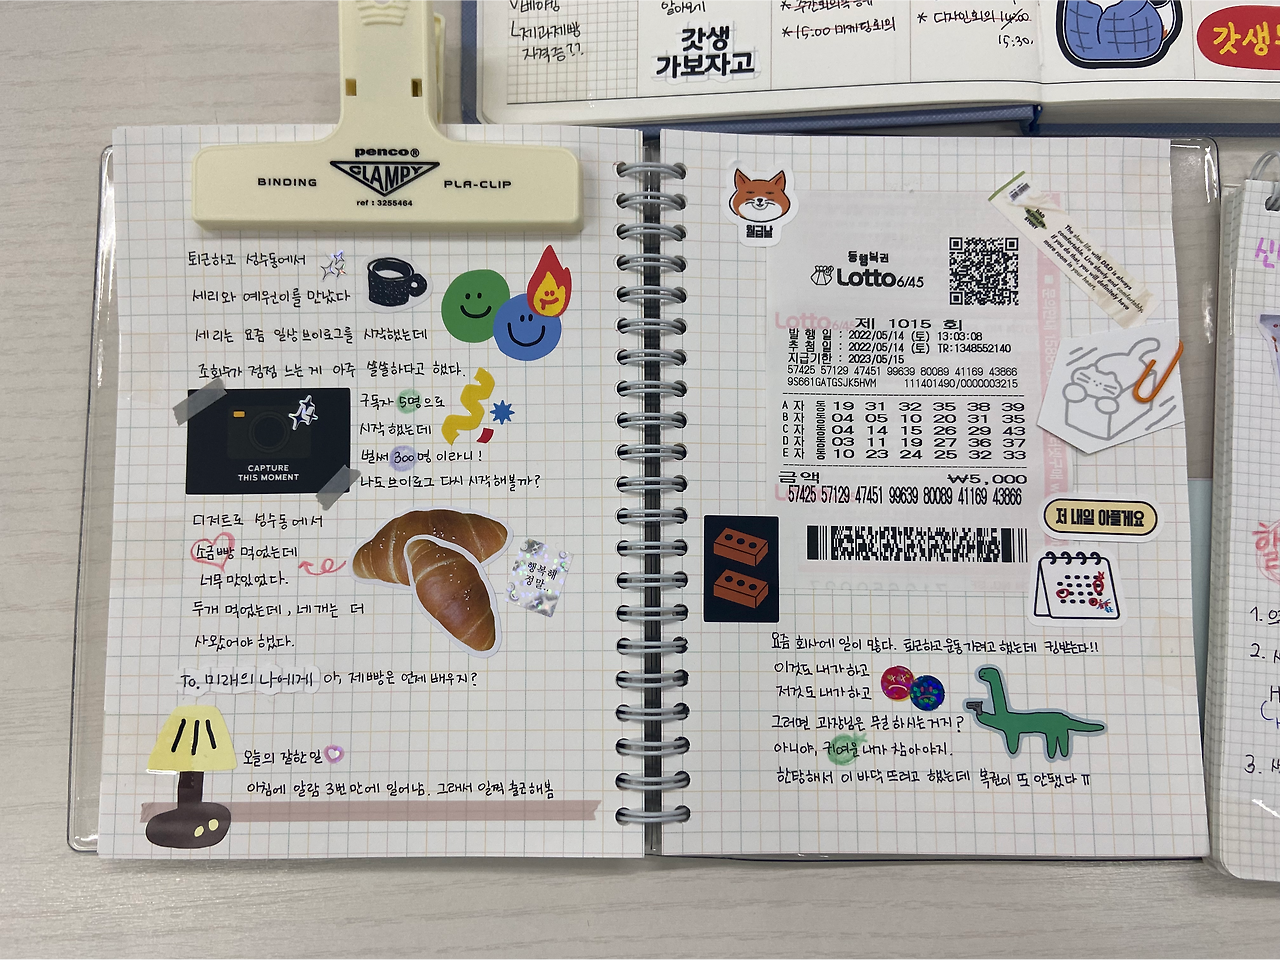 ㄴ제과제빵
자격증??
알아보기
갓생
가보자고
*15:00 마케팅회의
* 디자인회의 14:00
15:30.
갓생
penco®
CLAMPY
BINDING PLA-CLIP
ref : 3255464
퇴근하고 성수동에서
세리와 예원이를 만났다
세리는 요즘 일상 브이로그를 시작했는데
조회수가 정점 느는게 아주 쏠쏠하다고 했다.
구독자 5명으로
시작했는데
벌써 300명 이라니!
나도 브이로그 다시 시작해볼까?
CAPTURE
THIS MOMENT
디저트로 성수동에서
소금빵 먹었는데
너무 맛있었다.
두개 먹었는데, 네개는 더
사왔어야 했다.
행복해
정말..
To. 미래의 나에게 아, 제빵은 언제 배우지?
오늘의 잘한일
아침에 알람 3번만에 일어남. 그래서 일찍 출근해봄
월급날
동행복권
Lotto 6/45
The slow life with D&D is always
comfortable. Live slowly and comfortably.
If you do that, you will definitely have
more room in your heart.
제 1015 회
발 행 일 : 2022/05/14 (토) 13:03:08
추 첨 일 : 2022/05/14 (토) TR:1348552140
지급기한 : 2023/05/15
57425 57129 47451 99639 80089 41169 43866
9S661GATGSJK5HVM 111401490/0000003215
A 자 동 19 31 32 35 38 39
B 자 동 04 05 10 20 31 35
C 자 동 04 14 15 26 29 43
D 자 동 03 11 19 27 36 37
E 자 동 10 23 24 25 32 33
금액 ₩5,000
57425 57129 47451 99639 80089 41169 43866
저 내일 아플게요
요즘 회사에 일이 많다. 퇴근하고 운동가려고 했는데 킹받는다!!
이것도 내가하고
저것도 내가하고
그러면 과장님은 무얼 하시는거지?
아니야, 귀여운 내가 참아야지.
한탕해서 이 바닥 뜨려고 했는데 복권이 또 안됐다 ㅠ
1.
2.
3.